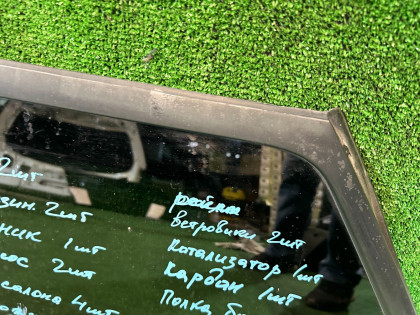 2шт
зин. 2шт
ник 1шт
ос 2шт
салона 4шт
Ветровики 2шт
Катализатор 1шт
Кардан 1шт
Полка б